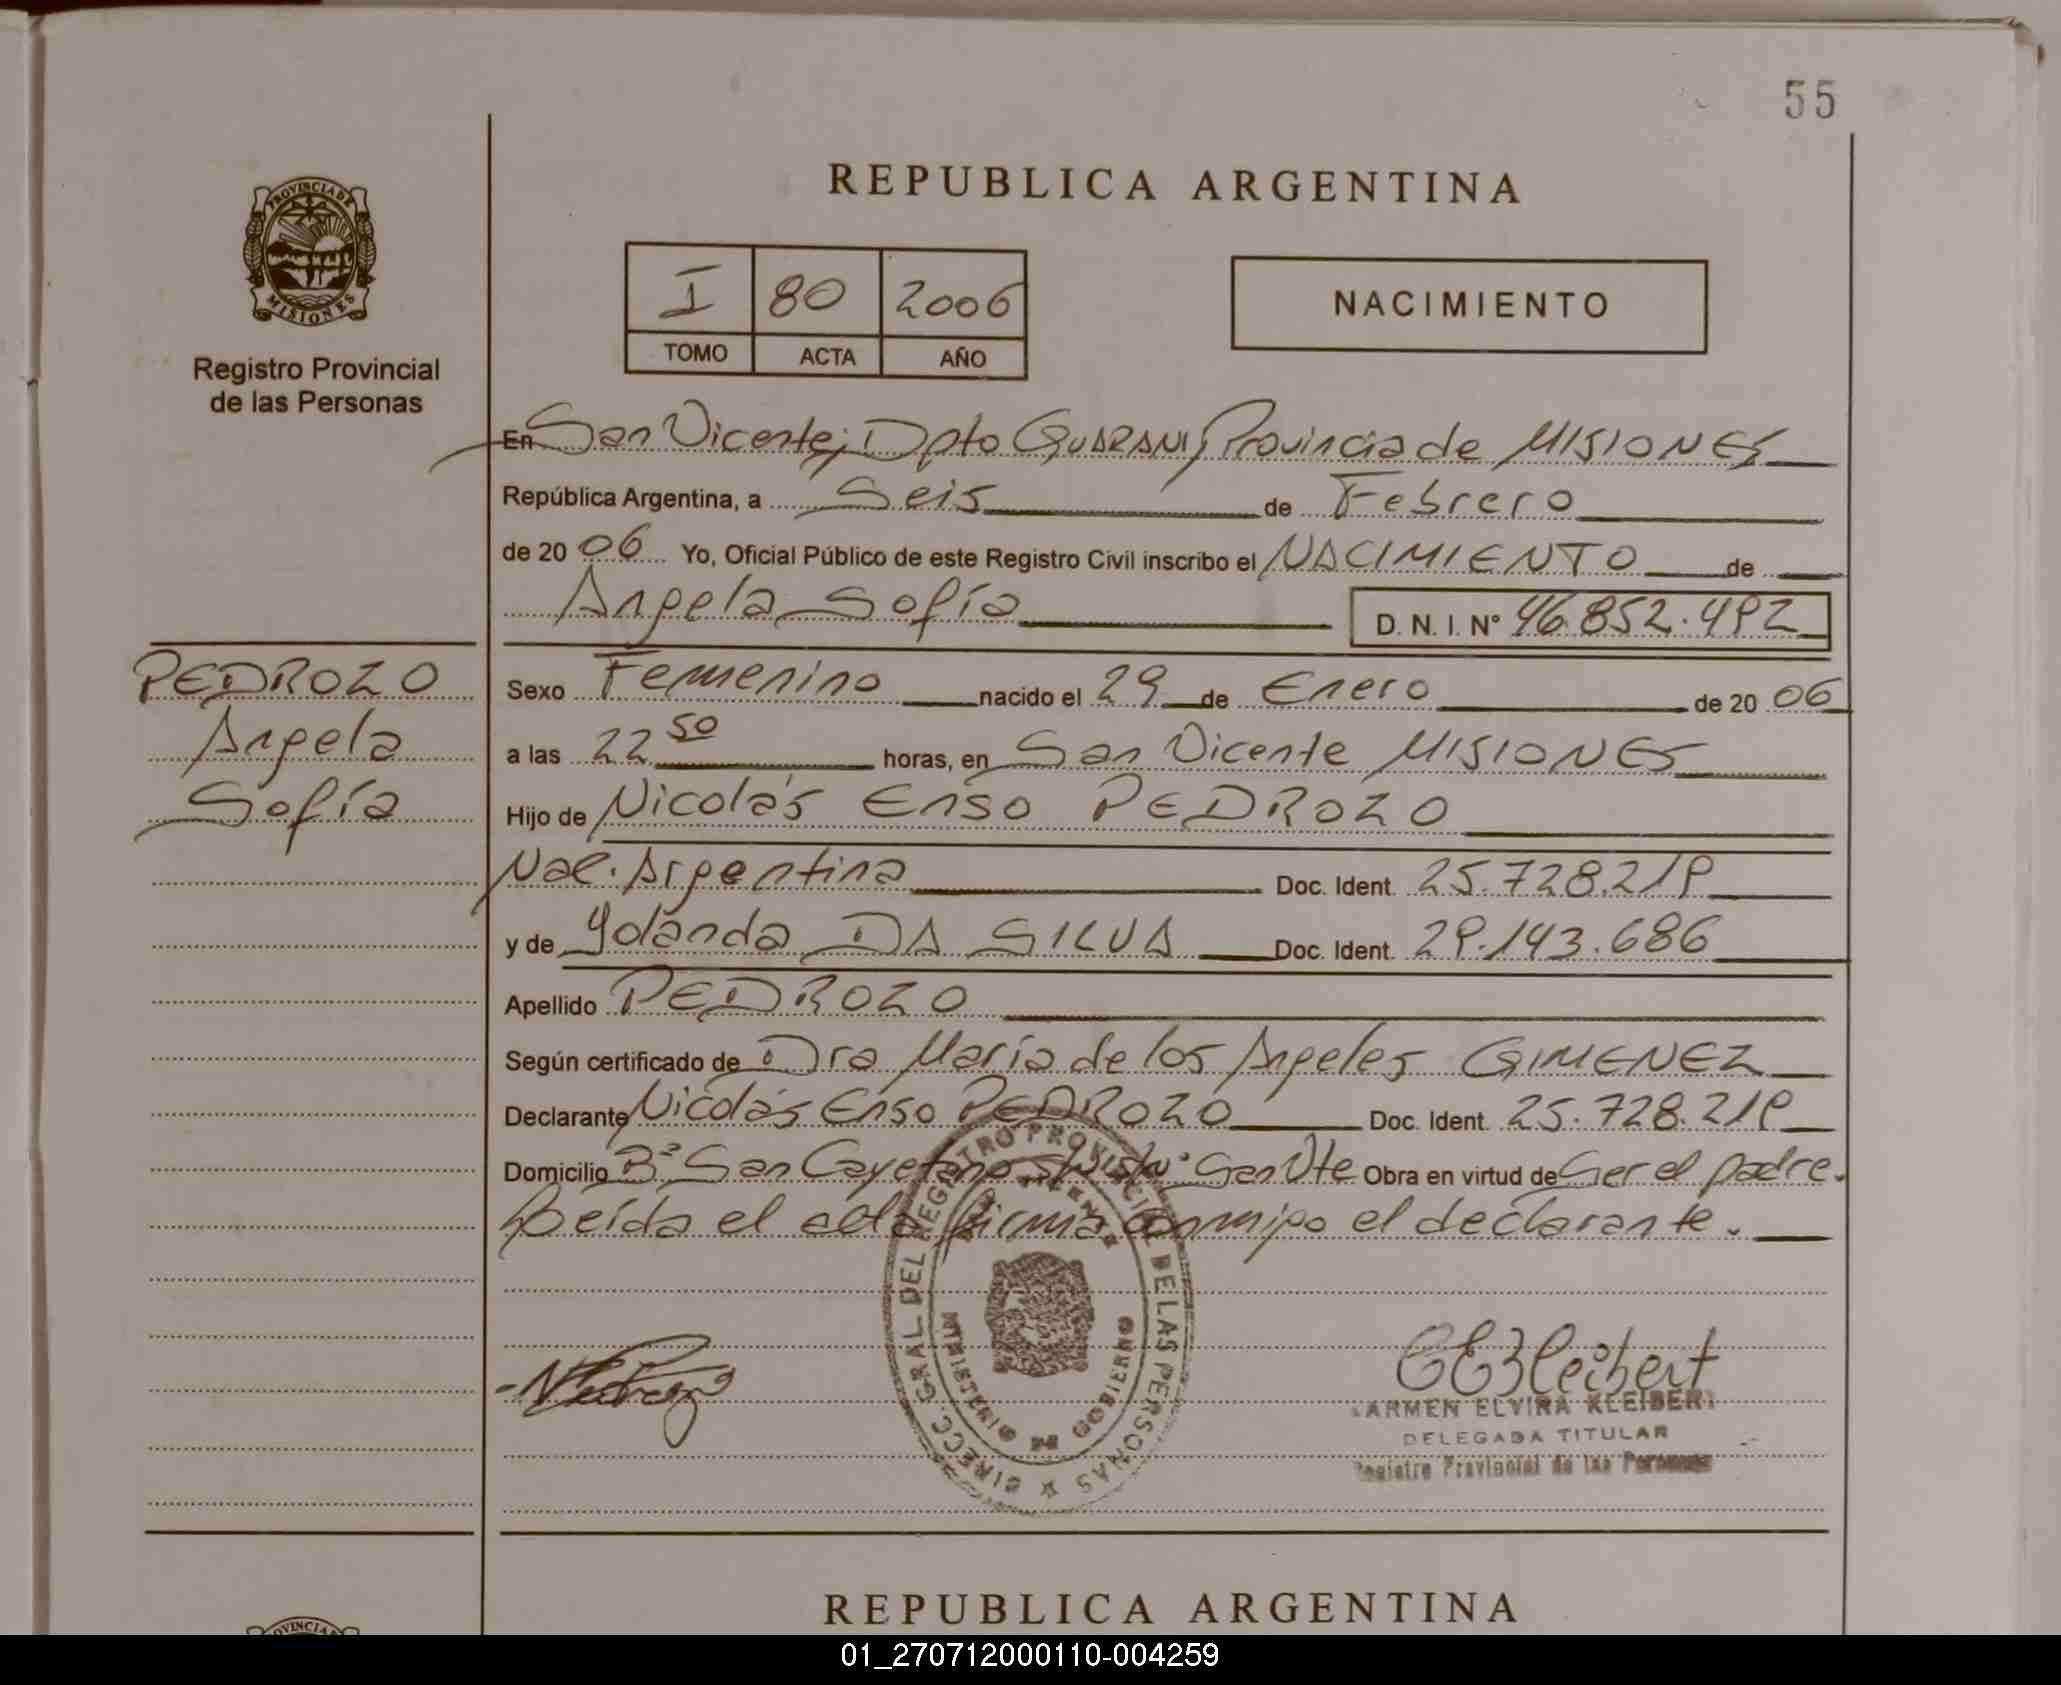 55
PROVINCIA DE
MISIONES
Registro Provincial
de las Personas
REPUBLICA ARGENTINA
I 80 2006
TOMO ACTA AÑO
NACIMIENTO
En San Vicente, Dpto GUARANI, Provincia de MISIONES
República Argentina, a Seis de Febrero
de 20 06 Yo, Oficial Público de este Registro Civil inscribo el NACIMIENTO de
Angela Sofía D. N. I. N° 46.852.492
PEDROZO
Angela
Sofía
Sexo Femenino nacido el 29 de Enero de 20 06
a las 22 50 horas, en San Vicente MISIONES
Hijo de Nicolás Enso PEDROZO
Nac. Argentina Doc. Ident. 25.728.219
y de Yolanda DA SILVA Doc. Ident. 29.143.686
Apellido PEDROZO
Según certificado de Dra María de los Angeles GIMENEZ
Declarante Nicolás Enso PEDROZO Doc. Ident. 25.728.219
Domicilio B° San Cayetano San Vte Obra en virtud de Ser el padre.
Leída el acta firma conmigo el declarante.
DIRECC. GRAL. DEL REGISTRO PROVINCIAL DE LAS PERSONAS
MINISTERIO DE GOBIERNO
CEKleibert
CARMEN ELVIRA KLEIBERT
DELEGADA TITULAR
Registro Provincial de las Personas
REPUBLICA ARGENTINA
01_270712000110-004259